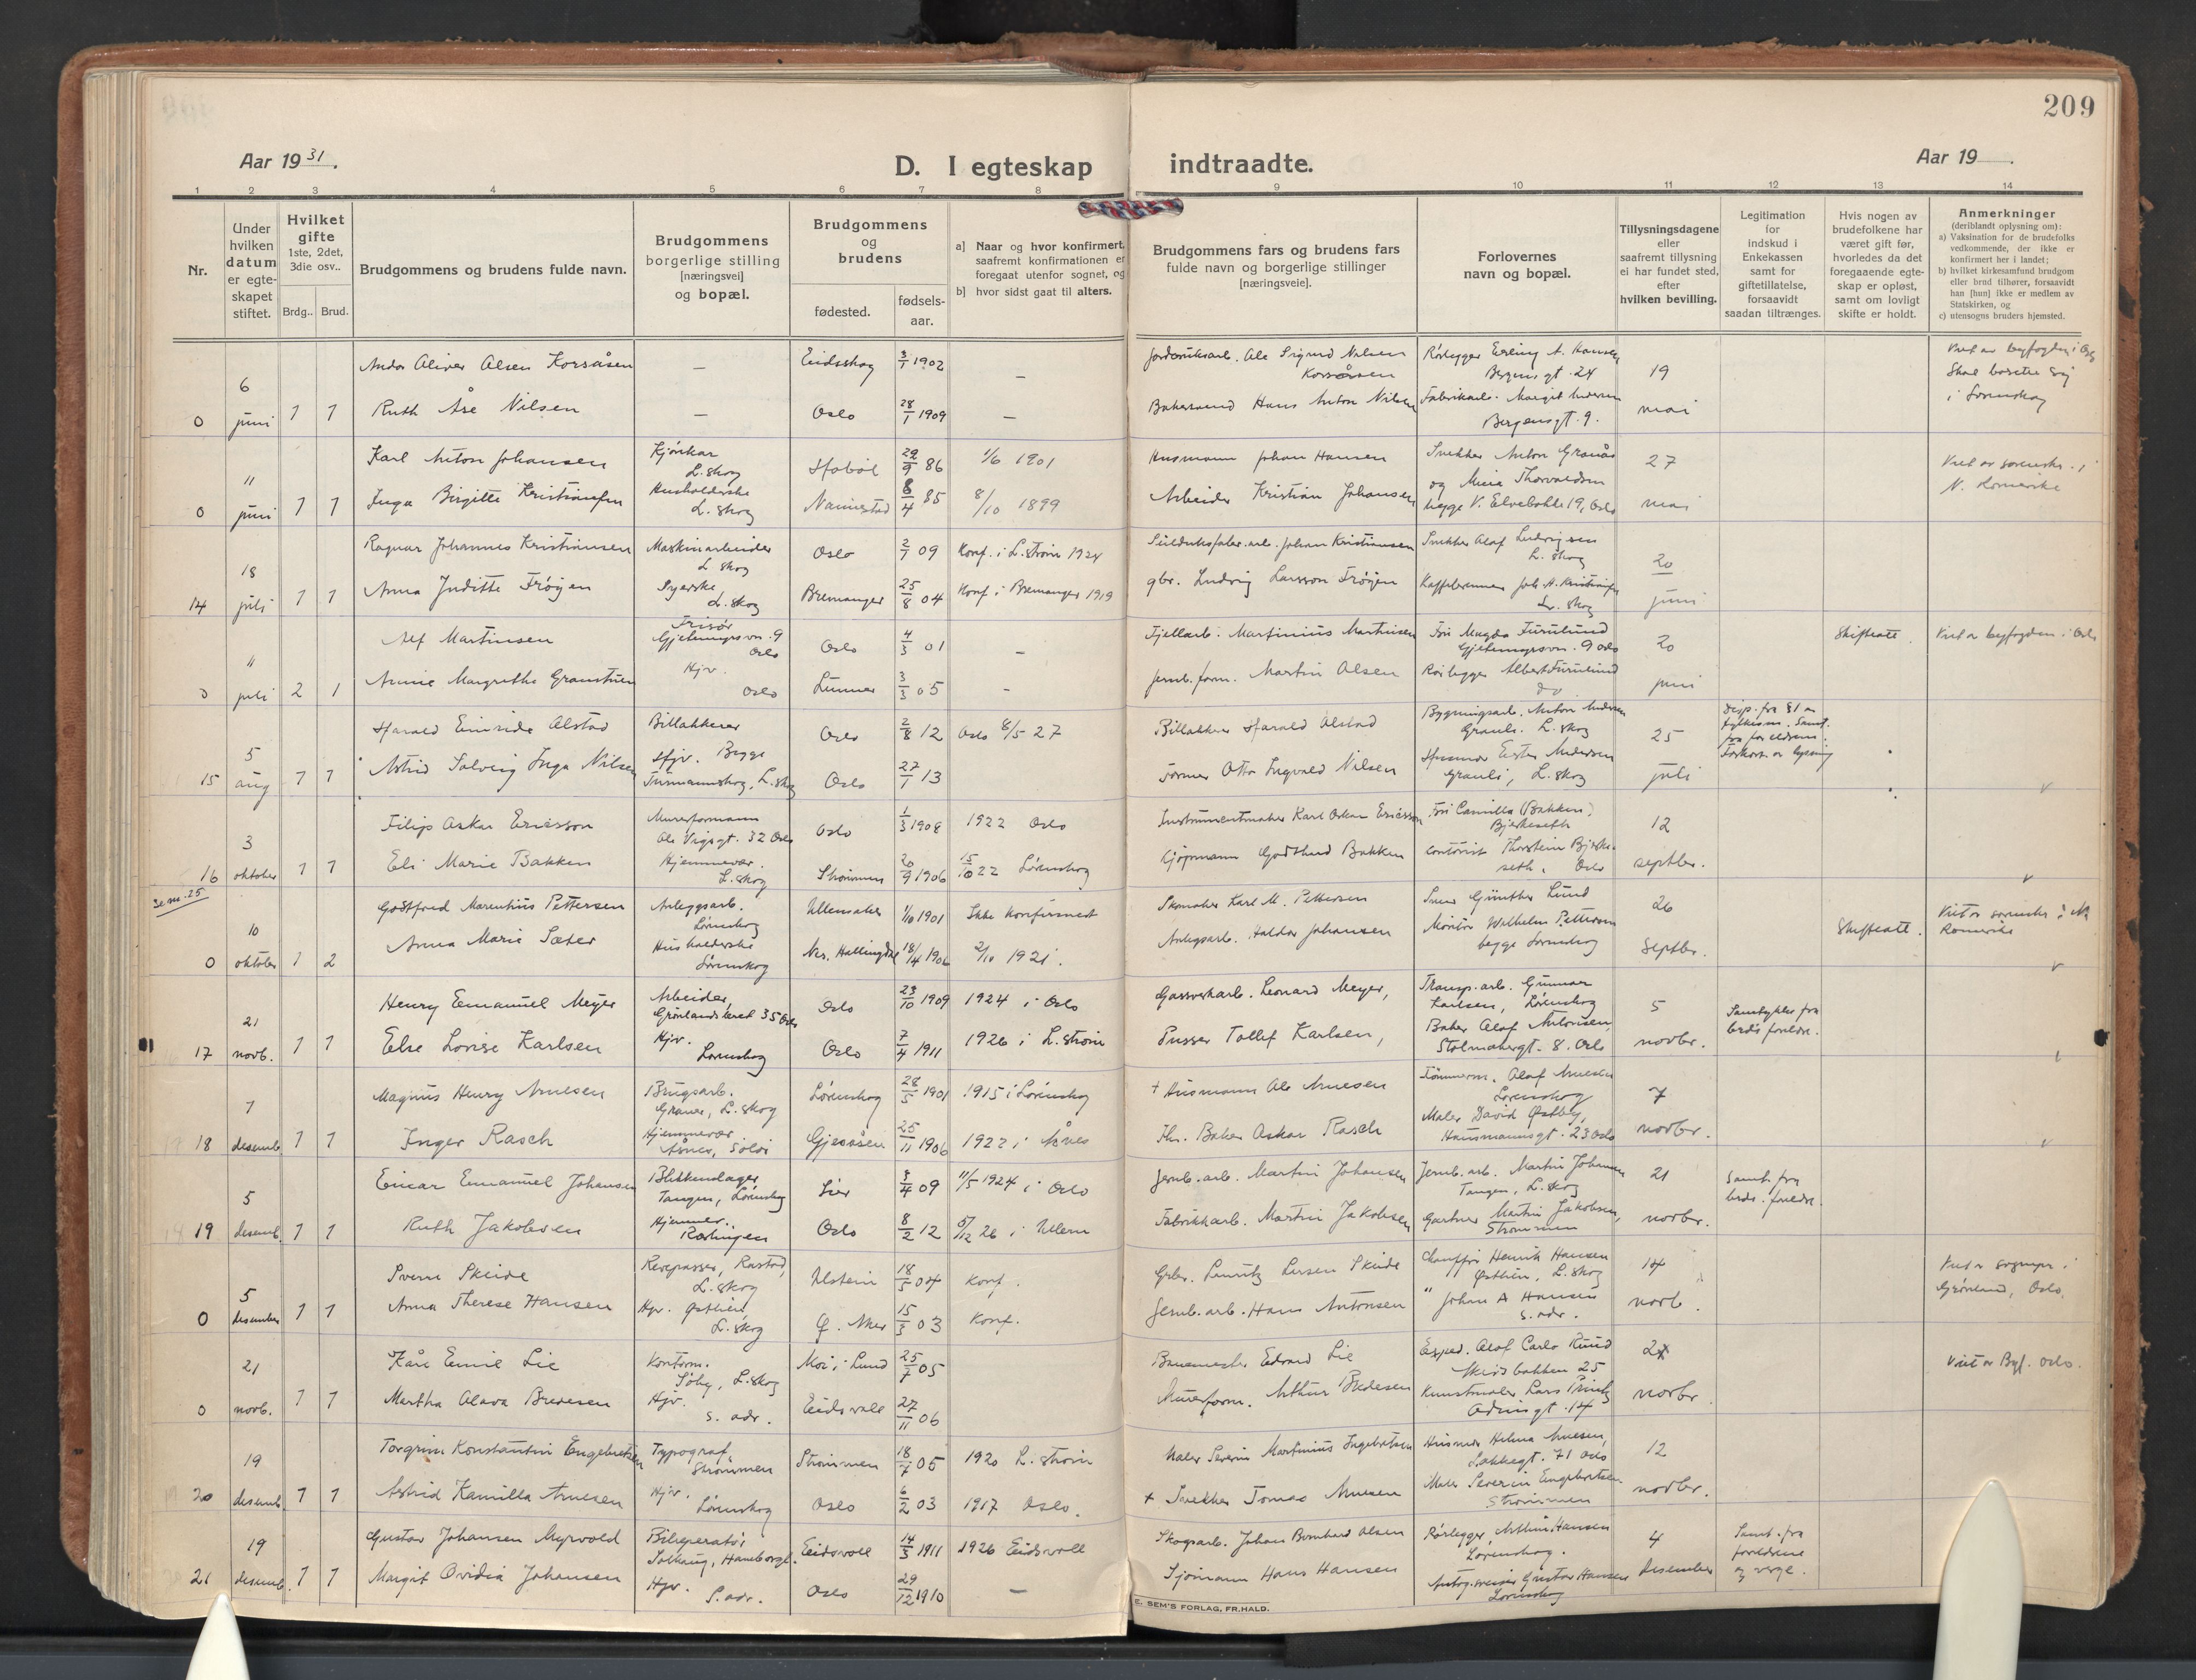 209
Aar 1931.
D. I egteskap indtraadte.
Aar 19
1 2 3 4 5 6 7 8 9 10 11 12 13 14
Nr.
Under hvilken datum er egte-skapet stiftet.
Hvilket gifte 1ste, 2det, 3die osv..
Brdg.. Brud.
Brudgommens og brudens fulde navn.
Brudgommens borgerlige stilling [næringsvei] og bopæl.
Brudgommens og brudens
fødested.
fødsels-aar.
a] Naar og hvor konfirmert, saafremt konfirmationen er foregaat utenfor sognet, og
b] hvor sidst gaat til alters.
Brudgommens fars og brudens fars fulde navn og borgerlige stillinger [næringsveie].
Forlovernes navn og bopæl.
Tillysningsdagene eller saafremt tillysning ei har fundet sted, efter hvilken bevilling.
Legitimation for indskud i Enkekassen samt for giftetillatelse, forsaavidt saadan tiltrænges.
Hvis nogen av brudefolkene har været gift før, hvorledes da det foregaaende egte-skap er opløst, samt om lovligt skifte er holdt.
Anmerkninger (deriblandt oplysning om):
a) Vaksination for de brudefolks vedkommende, der ikke er konfirmert her i landet;
b) hvilket kirkesamfund brudgom eller brud tilhører, forsaavidt han [hun] ikke er medlem av Statskirken, og
c) utensogns bruders hjemsted.
Andor Oliver Olsen Korsåsen — Eidsskog 3/1 1902 — Jordbruksarb. Ole Sigurd Nilsen Korsåsen Rørlegger Erling A. Hansen Bergensgt. 24 19
0 6 juni 1 1 Ruth Åse Nilsen — Oslo 28/1 1909 — Bakersvend Hans Anton Nilsen Fabrikarb. Margit Andersen Bergensgt. 9. mai
Skal bosette sig i Lørenskog
Karl Anton Johansen L.skog Hobøl 29/9 86 1/6 1901 Husmann Johan Hansen Snekker Anton Granås 27
0 11 juni 1 1 Inga Birgitte Kristiansen Husholderske L. skog Nannestad 8/4 85 8/10 1899 Arbeider Kristian Johansen og Marie Thorvaldsen begge V. Elvebakke 19, Oslo mai
Viet av sorenskr. i N. Romerike
Ragnar Johannes Kristiansen Maskinarbeider L skog Oslo 2/7 09 Konf. i L.strøm 1924 Johan Kristiansen Snekker Olaf Ludvigsen L. skog 20
14 18 juli 1 1 Anna Juditte Frøyen Syerske L. skog Bremanger 25/8 04 Konf. i Bremanger 1919 gbr. Ludvig Larsson Frøyen L. skog juni
Alf Martinsen Frisør Gjetemyrsvn. 9 Oslo Oslo 4/3 01 — Fjellarb. Martinius Martinsen Fru Magda Furulund Gjetemyrsvn. 9 Oslo 20 Skifteatt. Viet av byfogden i Oslo
0 11 juli 2 1 Hjv. Oslo Lunner 3/3 05 — Jernb.form. Martin Olsen Rørlegger Albert Furulund do juni
Harald Einride Alstad Billakkerer Oslo 2/8 12 Oslo 8/5 27 Billakkerer Harald Alstad Bygningsarb. Anton Andersen L. skog 25
15 5 aug 1 1 Astrid Solveig Inga Nilsen Hjv. Begge L. skog Oslo 27/1 13 Former Otto Ingvald Nilsen Husmor Ester Andersen L. skog juli
Filip Oskar Ericsson Murerformann Ole Vigsgt. 32 Oslo Oslo 1/3 1908 1922 Oslo Instrumentmaker Karl Oskar Ericsson Fru Camilla (Bakken) Bjerkeseth 12
16 3 oktober 1 1 Eli Marie Bakken Hjemmevær. L. skog Strømmen 20/9 1906 15/10 22 Lørenskog Kjøpmann Godtlund Bakken Kontorist Thorstein Bjerkeseth, Oslo septbr.
se nr. 25
Godtfred Marentius Pettersen Anleggsarb. Lørenskog Ullensaker 1/10 1901 Ikke konfirmert Skomaker Karl M. Pettersen 26 Skifteatt.
0 10 oktober 1 2 Anna Marie Sæter Husholderske Lørenskog Nes, Hallingdal 18/4 1906 2/10 1921. Anlegsarb. Haldor Johansen Montør Wilhelm Pettersen begge Lørenskog Septbr.
Viet av sorenskr. i N. Romerike
Henry Emanuel Meyer Arbeider, Grønlandsleret 35 Oslo Oslo 23/10 1909 1924 i Oslo Gassverkarb. Leonard Meyer, Transp.arb. Gunnar Karlsen, Lørenskog 5 Samtykke fra brds foreldre.
17 21 novb. 1 1 Else Lovise Karlsen Hjv. Lørenskog Oslo 7/4 1911 1926 i L.strøm Pusser Tollef Karlsen, Baker Olaf Antonsen Stolmakergt. 8. Oslo novbr.
Magnus Henry Arnesen Brugsarb. L.skog Lørenskog 28/5 1901 1915 i Lørenskog + Husmann Ole Arnesen Tømmerm. Olaf Arnesen Lørenskog 7
18 7 desemb. 1 1 Inger Rasch Hjemmevær. Åsnes, Solør Gjesåsen 25/11 1906 1922 i Åsnes Fhv. Baker Oskar Rasch Maler David Østby, Hausmannsgt. 23 Oslo novbr.
Einar Emanuel Johansen Blikkenslager, Tangen, Lørenskog Lier 3/4 09 11/5 1924 i Oslo Jernb.arb. Martin Johansen Jernb.arb. Martin Johansen Tangen, L. skog 21 Samt. fra brds. foreldre.
19 5 desemb. 1 1 Ruth Jakobsen Hjemmev. Rælingen Oslo 8/2 12 5/12 26 i Ullern Fabrikkarb. Martin Jakobsen Gartner Martin Jakobsen, Strømmen novbr.
Sverre Skeide Revepasser, Rastad, L. skog Ulstein 18/5 04 konf. Gbr. Lauritz Larsen Skeide Chauffør Henrik Hansen Østlien, L. skog 14
0 5 desember 1 1 Anna Therese Hansen Hjv. Østlien, L. skog Ø. Aker 15/3 03 Konf. Jernb.arb. Hans Antonsen " Johan A Hansen s. adr. novb.
Viet av sognepr. i Grønland, Oslo.
Kåre Emil Lie Kontorm. L.skog Moi i Lund 25/7 05 Banemester Edvard Lie Exped. Olaf Carlo Ruud 25 Viet av Byf. Oslo.
0 21 novb. 1 1 Martha Olava Bredesen Hjv. s. adr. Eidsvoll 27/11 06 Murerform. Arthur Bredesen Kunstmaler Lars novbr.
Torgrim Konstantin Engebretsen Typograf Strømmen Strømmen 18/7 05 1920 L. strøm Maler Severin Martinius Ingebretsen Husmor Helma Arnesen, Lakkegt. 71 Oslo 12
20 19 desemb. 1 1 Astrid Kamilla Arnesen Hjv. Lørenskog Oslo 6/2 03 1917 Oslo. + Snekker Tomas Arnesen Maler Severin Engebretsen Strømmen novbr.
Gustav Johansen Myrvold Bilreperatør Solhaug, Eidsvoll 14/3 1911 1926 Eidsvoll Skogsarb. Johan Bernhard Olsen Rørlegger Arthur Hansen Lørenskog. 4 Samt. fra foreldrene og verge.
21 19 desemb. 1 1 Margit Ovidia Johansen Hjv. S. adr. Oslo 29/12 1910 — Sjømann Hans Hansen Gustav Hansen Lørenskog desember
E. SEM'S FORLAG, FR.HALD.